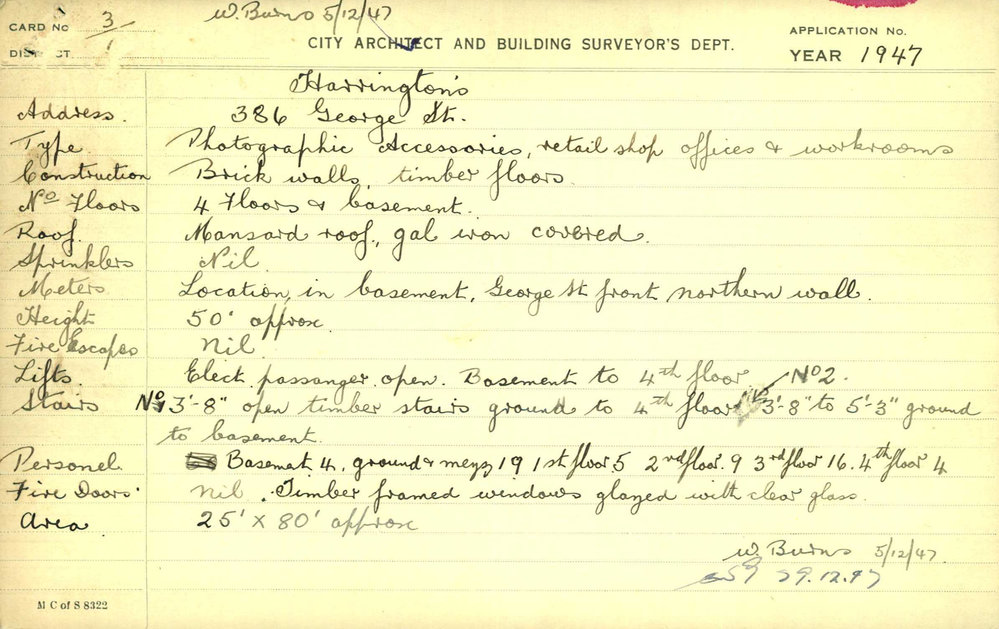 W. Burns 5/12/47
CARD No 3
DISTRICT 1
CITY ARCHITECT AND BUILDING SURVEYOR'S DEPT.
APPLICATION No.
YEAR 1947
Harrington's
Address. 386 George St.
Type Photographic Accessories, retail shop offices & workrooms
Construction Brick walls, timber floors.
No Floors 4 Floors & basement.
Roof. Mansard roof, gal iron covered.
Sprinklers Nil.
Meters Location, in basement, George St front northern wall.
Height 50' approx.
Fire Escapes Nil.
Lifts. Elect. passanger open. Basement to 4th floor No 2.
Stairs No 1 3'-8" open timber stairs ground to 4th floor 3'-8" to 5'-3" ground
to basement.
Personel Basemat 4, ground & mezz 19 1st floor 5 2nd floor. 9 3rd floor 16. 4th floor 4
Fire Doors Nil. Timber framed windows glazed with clear glass.
Area 25' x 80' approx
W. Burns 5/12/47.
29.12.47
M C of S 8322